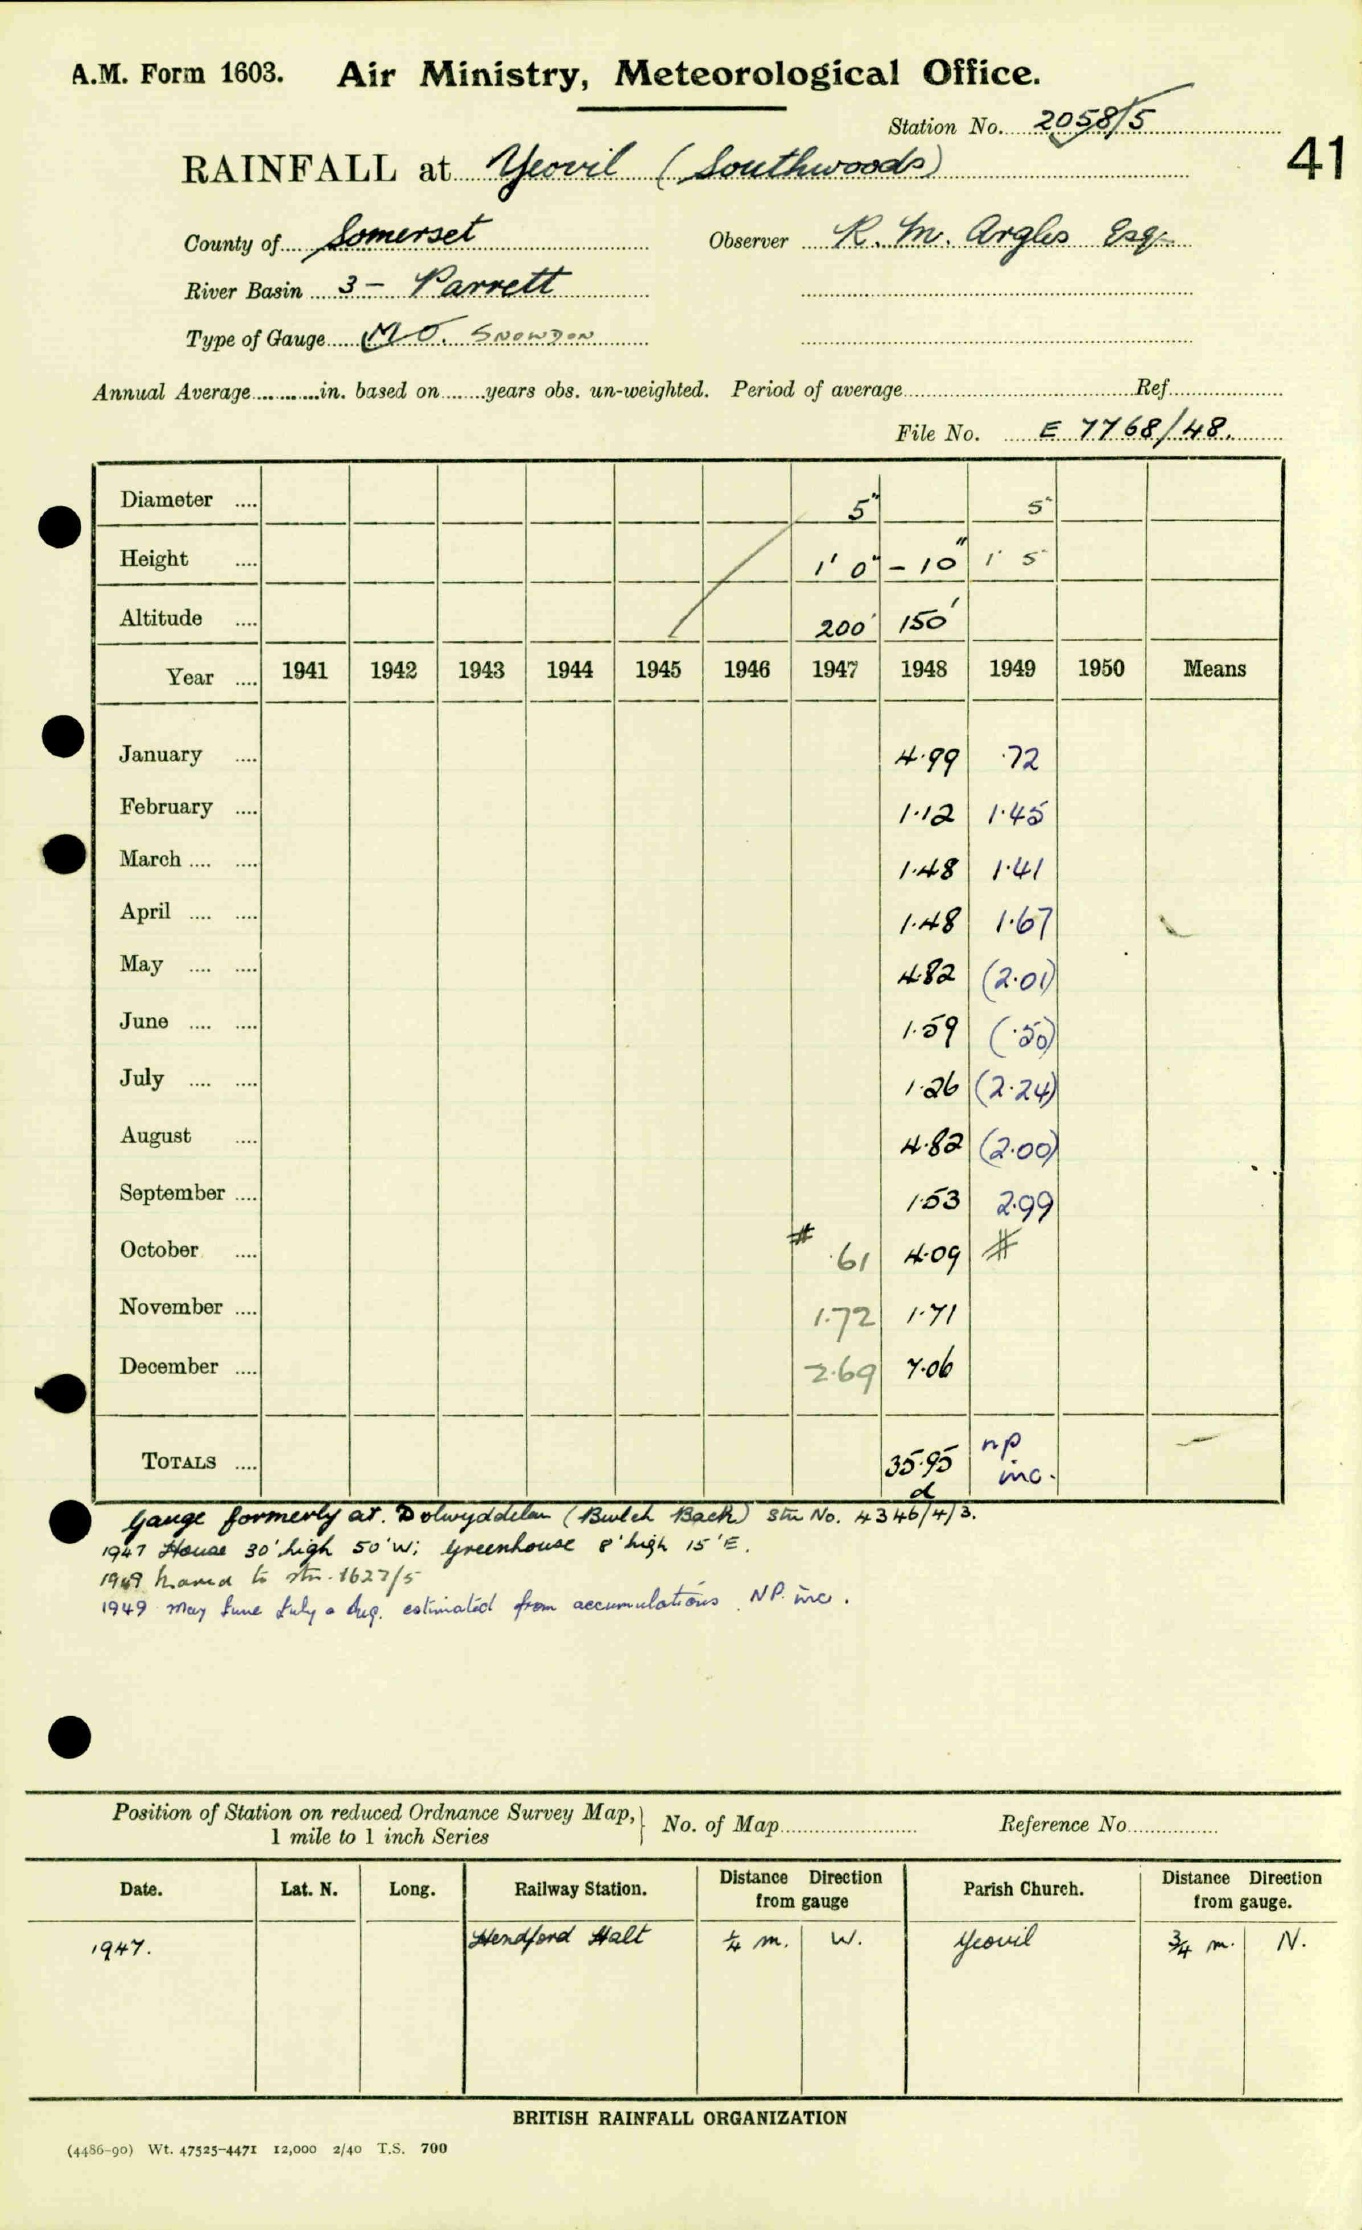 A.M. Form 1603. Air Ministry, Meteorological Office.
Station No. 2058/5
41
RAINFALL at Yeovil (Southwoods)
County of Somerset Observer R. M. Argles Esq.
River Basin 3 – Parrett
Type of Gauge M O. SNOWDON
Annual Average in. based on years obs. un-weighted. Period of average Ref
File No. E 7768/48.
Diameter 5" 5"
Height 1' 0" – 10" 1' 5"
Altitude 200' 150'
Year 1941 1942 1943 1944 1945 1946 1947 1948 1949 1950 Means
January 4.99 .72
February 1.12 1.45
March 1.48 1.41
April 1.48 1.67
May 4.82 (2.01)
June 1.59 (.50)
July 1.26 (2.24)
August 4.82 (2.00)
September 1.53 2.99
October # .61 4.09 #
November 1.72 1.71
December 2.69 7.06
TOTALS 35.95 d np inc.
Gauge formerly at Dolwyddelan (Bwlch Bach) Stn No. 4346/4/3.
1947 House 30' high 50' W; Greenhouse 8' high 15' E.
1949 Moved to stn. 1627/5
1949 May June July & Aug. estimated from accumulations. NP. inc.
Position of Station on reduced Ordnance Survey Map, 1 mile to 1 inch Series No. of Map Reference No.
Date. Lat. N. Long. Railway Station. Distance Direction from gauge Parish Church. Distance Direction from gauge.
1947. Hendford Halt ¼ m. W. Yeovil ¾ m. N.
BRITISH RAINFALL ORGANIZATION
(4486-90) Wt. 47525-4471 12,000 2/40 T.S. 700